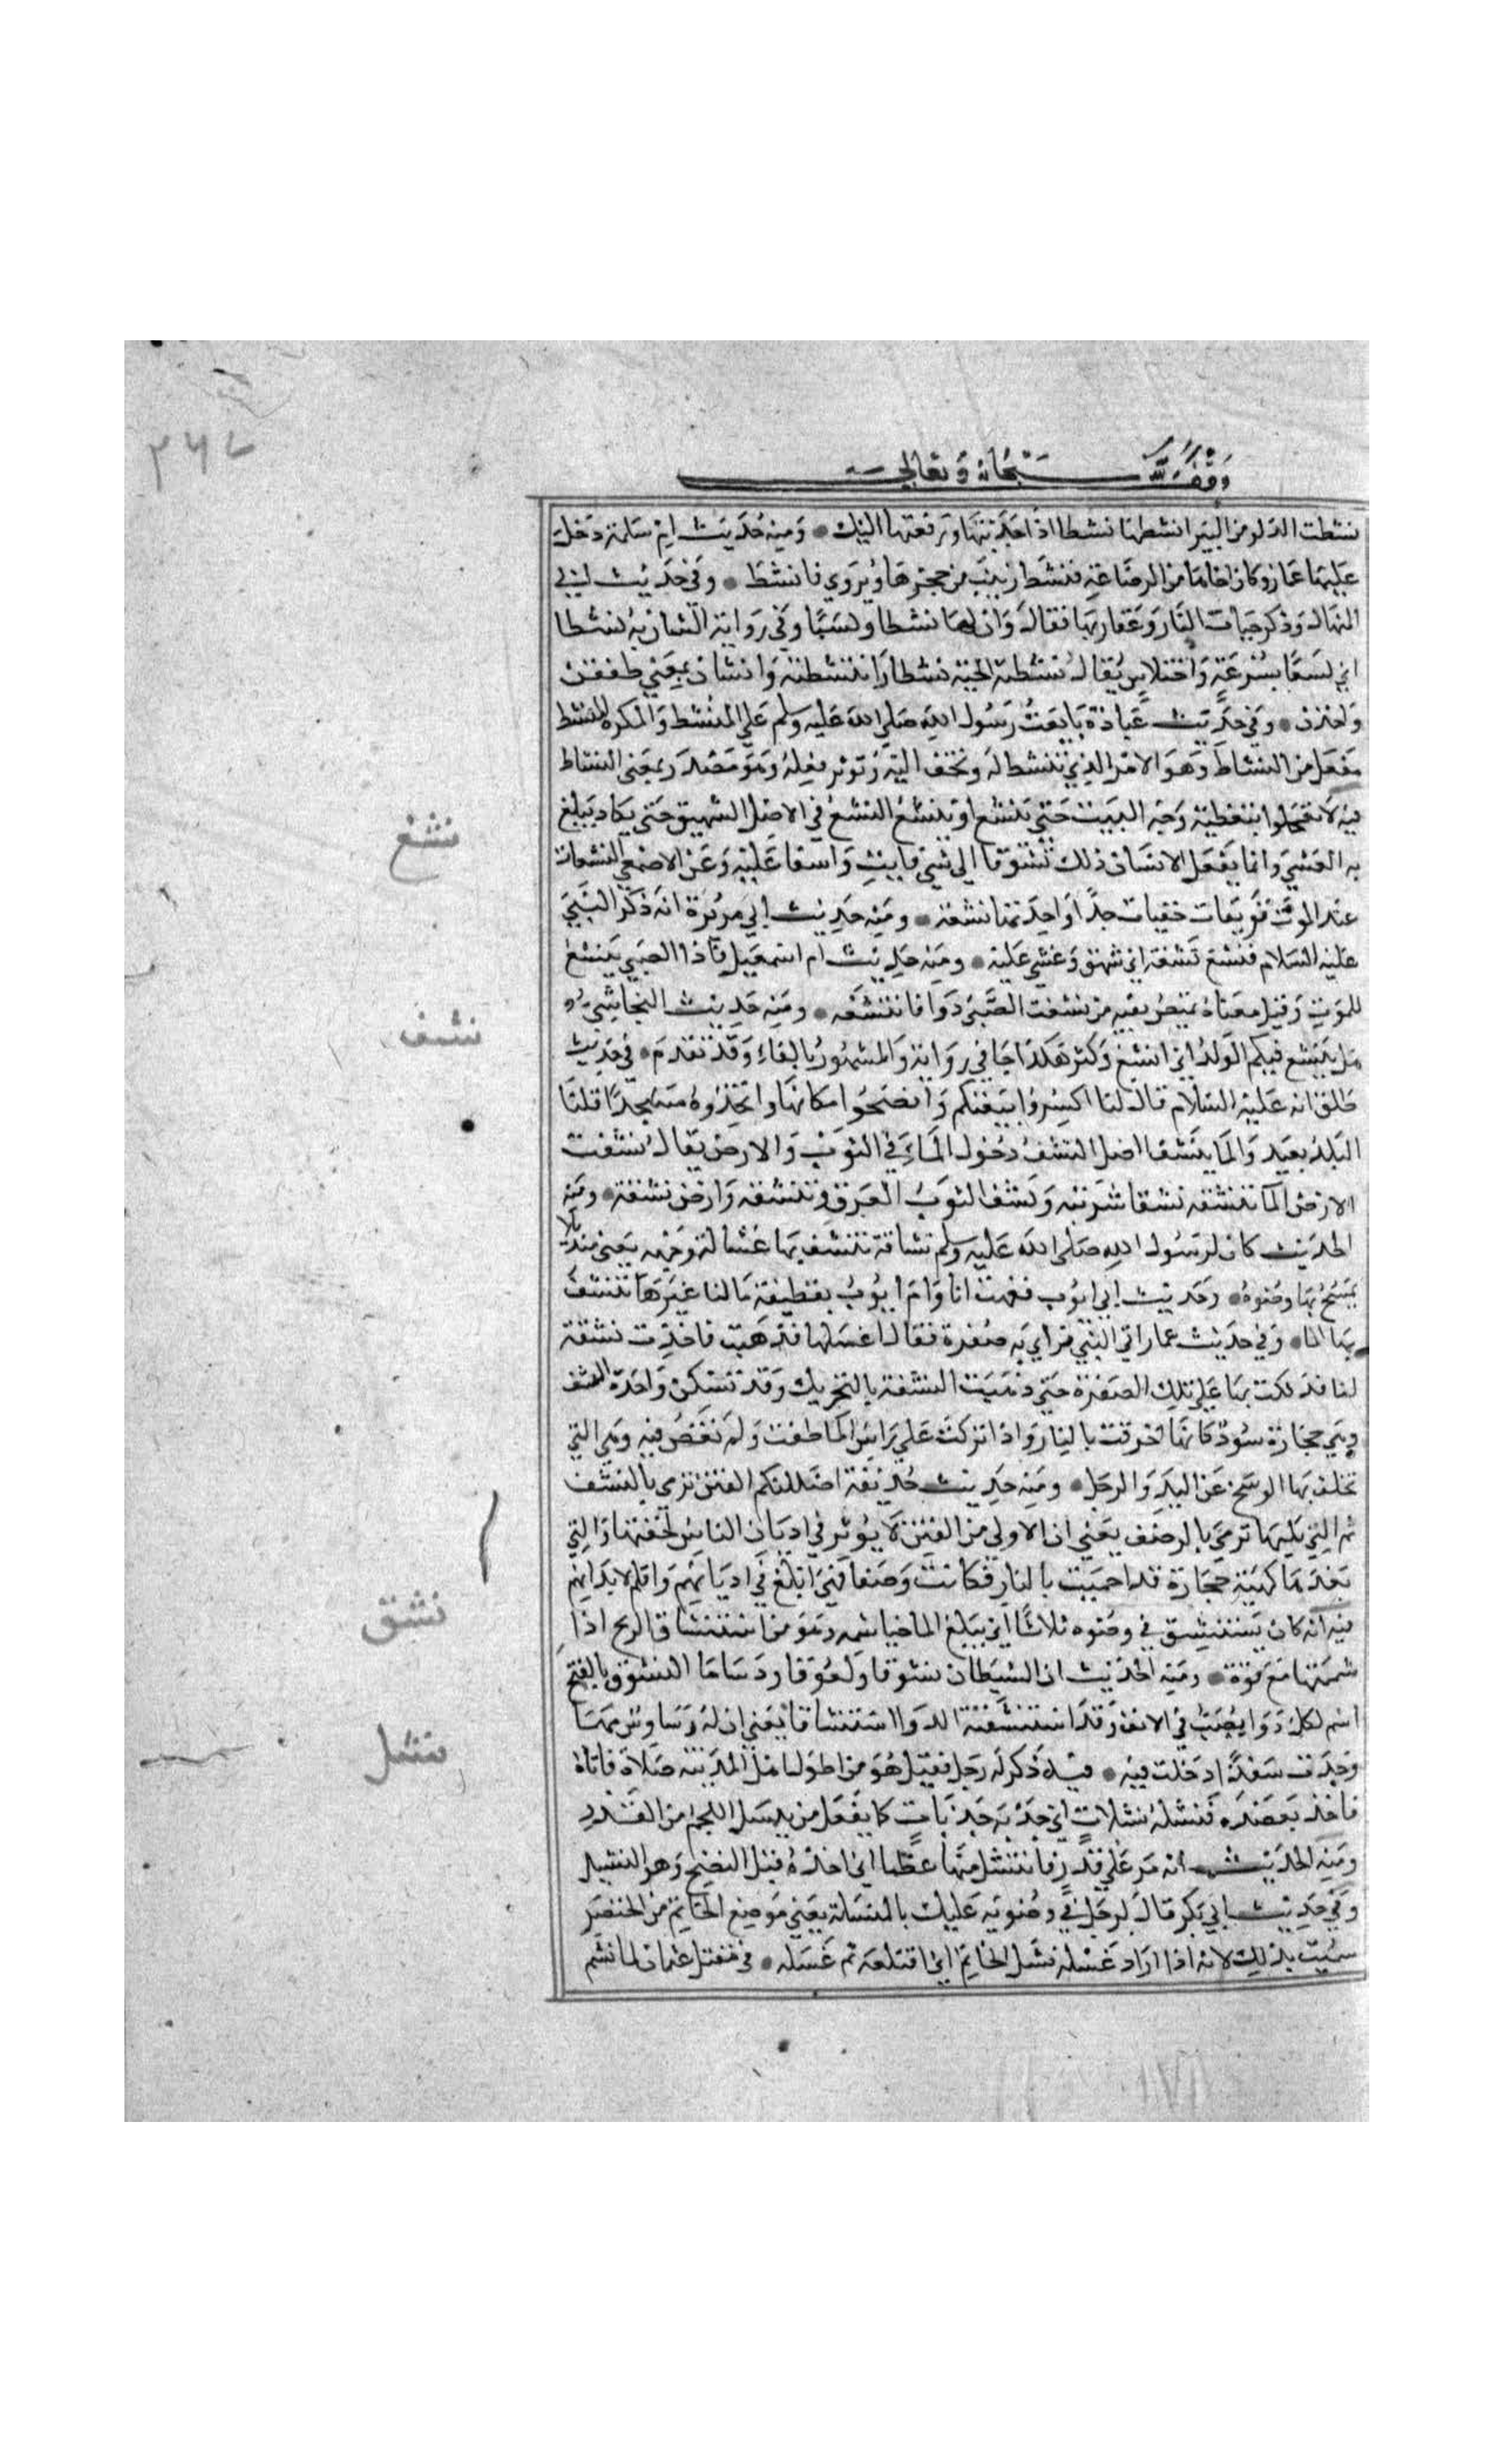 ٣٦٧
وقف لله سبحانه وتعالى
نشطت الدلو من البير انشطها نشطا اذا جذبتها ورفعتها اليك • ومنه حديث ام سلمة دخل
عليها عمار وكان اخاها من الرضاعة فنشط زينب من حجرها ويروي فانتشط • وفي حديث ابي
المنهال وذكر حيات النار وعقاربها فقال وان لها نشطا ولسبا وفي رواية انشان به نشطا
اي لسعا بسرعة واختلاس يقال نشطته الحية نشطا وانتشطته وانشان بمعني طفقن
واخذن • وفي حديث عبادة بايعت رسول الله صلي الله عليه وسلم علي المنشط والمكره المنشط
مفعل من النشاط وهو الامر الذي تنشط له وتخف اليه وتوثر فعله وهو مصدر بمعني النشاط
فيه لا تعجلوا بتغطية وجه الميت حتي ينشغ او يتنشغ النشغ في الاصل الشهيق حتي يكاد يبلغ
به الغشي وانما يفعل الانسان ذلك تشوقا الي شي فايت واسفا عليه وعن الاصمعي النشغات
عند الموت فويقات خفيات جدا واحدتها نشغة • ومنه حديث ابي هريرة انه ذكر النبي
عليه السلام فنشغ نشغة اي شهق وغشي عليه • ومنه حديث ام اسمعيل فاذا الصبي ينشغ
للموت وقيل معناه يمتص بفيه من نشغت الصبي دوا فانتشغه • ومنه حديث النجاشي
هل ينشغ فيكم الولد اي اتسع وكثر هكذا جا في رواية والمشهور بالفاء وقد تقدم • في حديث
طلق انه عليه السلام قال لنا اكسروا بيعتكم وانضحوا مكانها واتخذوه مسجدا قلنا
البلد بعيد والما ينشف اصل النشف دخول الماء في الثوب والارض يقال نشفت
الارض الما تنشفه نشفا شربته ونشف الثوب العرق وتنشفه وارض نشفة • ومنه
الحديث كان لرسول الله صلي الله عليه وسلم نشافة ينشف بها غسالة وجهه يعني منديلا
يمسح بها وضوه • وحديث ابي ايوب فقمت انا وام ايوب بقطيفة مالنا غيرها ننشف
بها الما • وفي حديث عمار اتي النبي فراي به صفرة فقال اغسلها فذهبت فاخذت نشفة
لنا فدلكت بها علي تلك الصفرة حتي ذهبت النشفة بالتحريك وقد تسكن واحدة النشف
وهي حجارة سود كانها احرقت بالنار واذا تركت علي راس الما طفت ولم تغص فيه وهي التي
تحك بها الوسخ عن اليد والرجل • ومنه حديث حذيفة اظلتكم الفتن ترمي بالنشف
ثم التي تليها ترمي بالرضف يعني ان الاولي من الفتن لا يوثر في اديان الناس لخفتها والتي
بعدها كهيئة حجارة قد احميت بالنار فكانت رضفا فهي ابلغ في اديانهم واثلم لابدانهم
فيه انه كان يستنشق في وضوه ثلاثا اي يبلغ الما خياشمه وهو من استنشاق الريح اذا
شممتها مع قوة • ومنه الحديث ان للشيطان نشوقا ولعوقا ودساما النشوق بالفتح
اسم لكل دوا يصب في الانف وقد استنشقت الدوا استنشاقا يعني ان له وساوس مهما
وجدت منفذا دخلت فيه • فيه ذكر له رجل فقيل هو من اطول اهل المدينة صلاة فاتاه
فاخذ بعضده فنشله نشلات اي جذبه جذبات كما يفعل من ينشل اللحم من القدر
ومنه الحديث انه مر علي قدر فانتشل منها عظما اي اخذه قبل النضج وهو النشيل
وفي حديث ابي بكر قال لرجل في وضوئه عليك بالمنشلة يعني موضع الخاتم من الخنصر
سميت بذلك لانه اذا اراد غسله نشل الخاتم اي اقتلعه ثم غسله • في مقتل عثمان لما نشم
نشغ
نشف
نشق
نشل